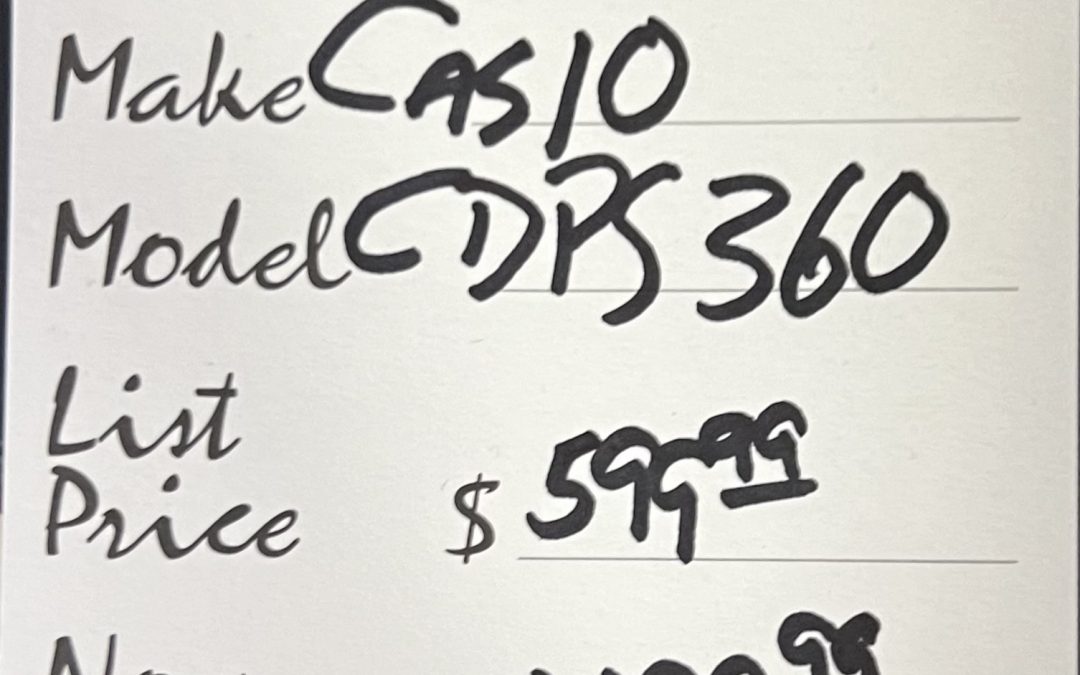 Make CASIO
Model CDPS 360
List
Price $ 599.99